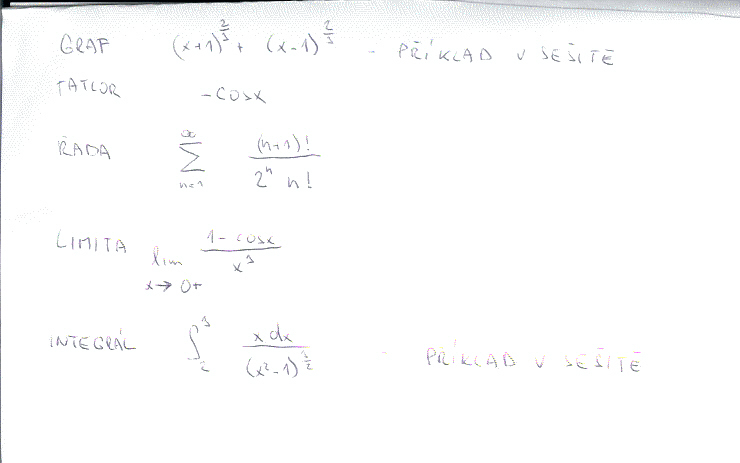 GRAF (x+1)^(2/3) + (x-1)^(2/3) - PŘÍKLAD V SEŠITĚ
TAYLOR -cosx
ŘADA ∑_{n=1}^{∞} (n+1)! / (2^n n!)
LIMITA lim_{x→0+} (1-cosx) / x^3
INTEGRÁL ∫_2^3 x dx / (x^2-1)^(3/2) - PŘÍKLAD V SEŠITĚ